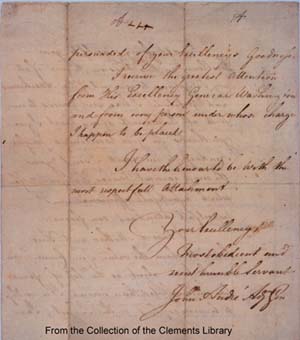 perswaded of your Excellency's Goodness
I receive the greatest Attention
from His Excellency General Washington
and from every person under whose charge
I happen to be placed.
I have the honour to be with the
most respectfull Attachment
Your Excellency's
most obedient and
most humble Servant
John André Adj Gen
From the Collection of the Clements Library